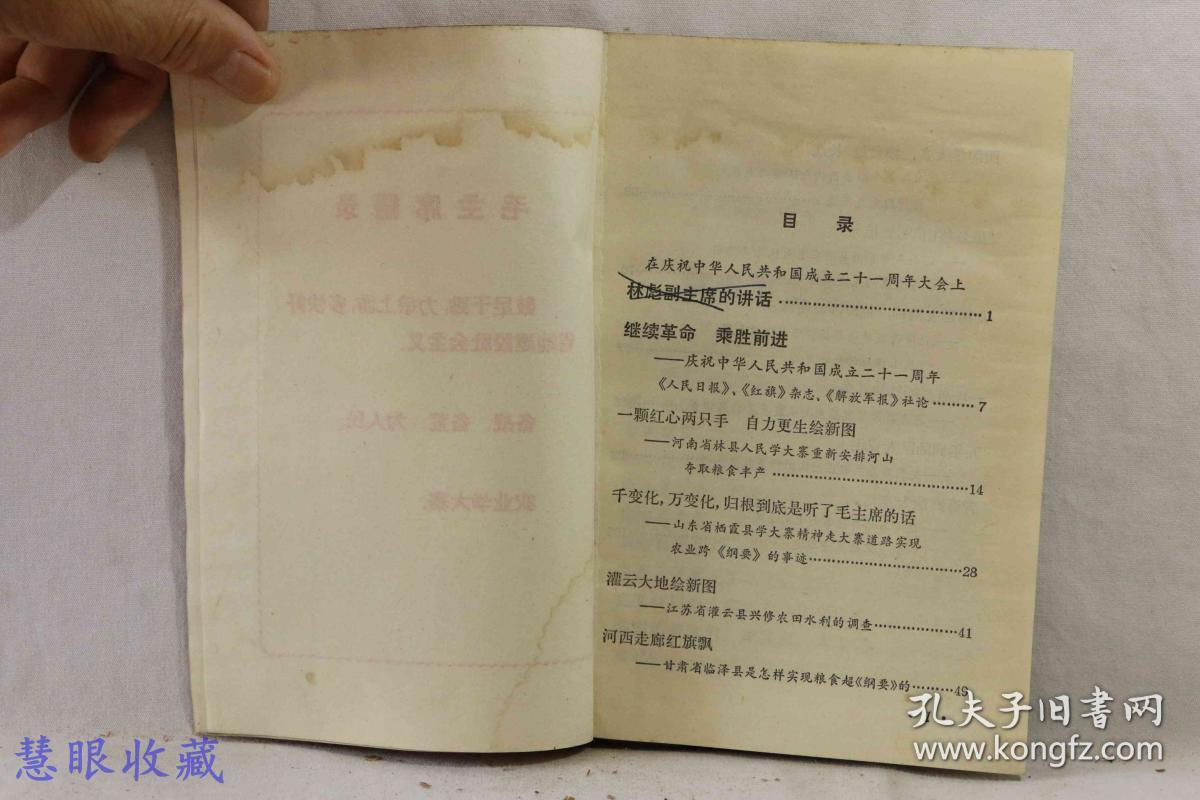 毛主席语录
鼓足干劲,力争上游,多快好
省地建设社会主义
备战、备荒、为人民
农业学大寨
目 录
在庆祝中华人民共和国成立二十一周年大会上
林彪副主席的讲话……………………………………1
继续革命 乘胜前进
——庆祝中华人民共和国成立二十一周年
《人民日报》、《红旗》杂志、《解放军报》社论………7
一颗红心两只手 自力更生绘新图
——河南省林县人民学大寨重新安排河山
夺取粮食丰产…………………………………14
千变化,万变化,归根到底是听了毛主席的话
——山东省栖霞县学大寨精神走大寨道路实现
农业跨《纲要》的事迹……………………………28
灌云大地绘新图
——江苏省灌云县兴修农田水利的调查………………41
河西走廊红旗飘
——甘肃省临泽县是怎样实现粮食超《纲要》的………49
慧眼收藏
孔夫子旧書网
www.kongfz.com